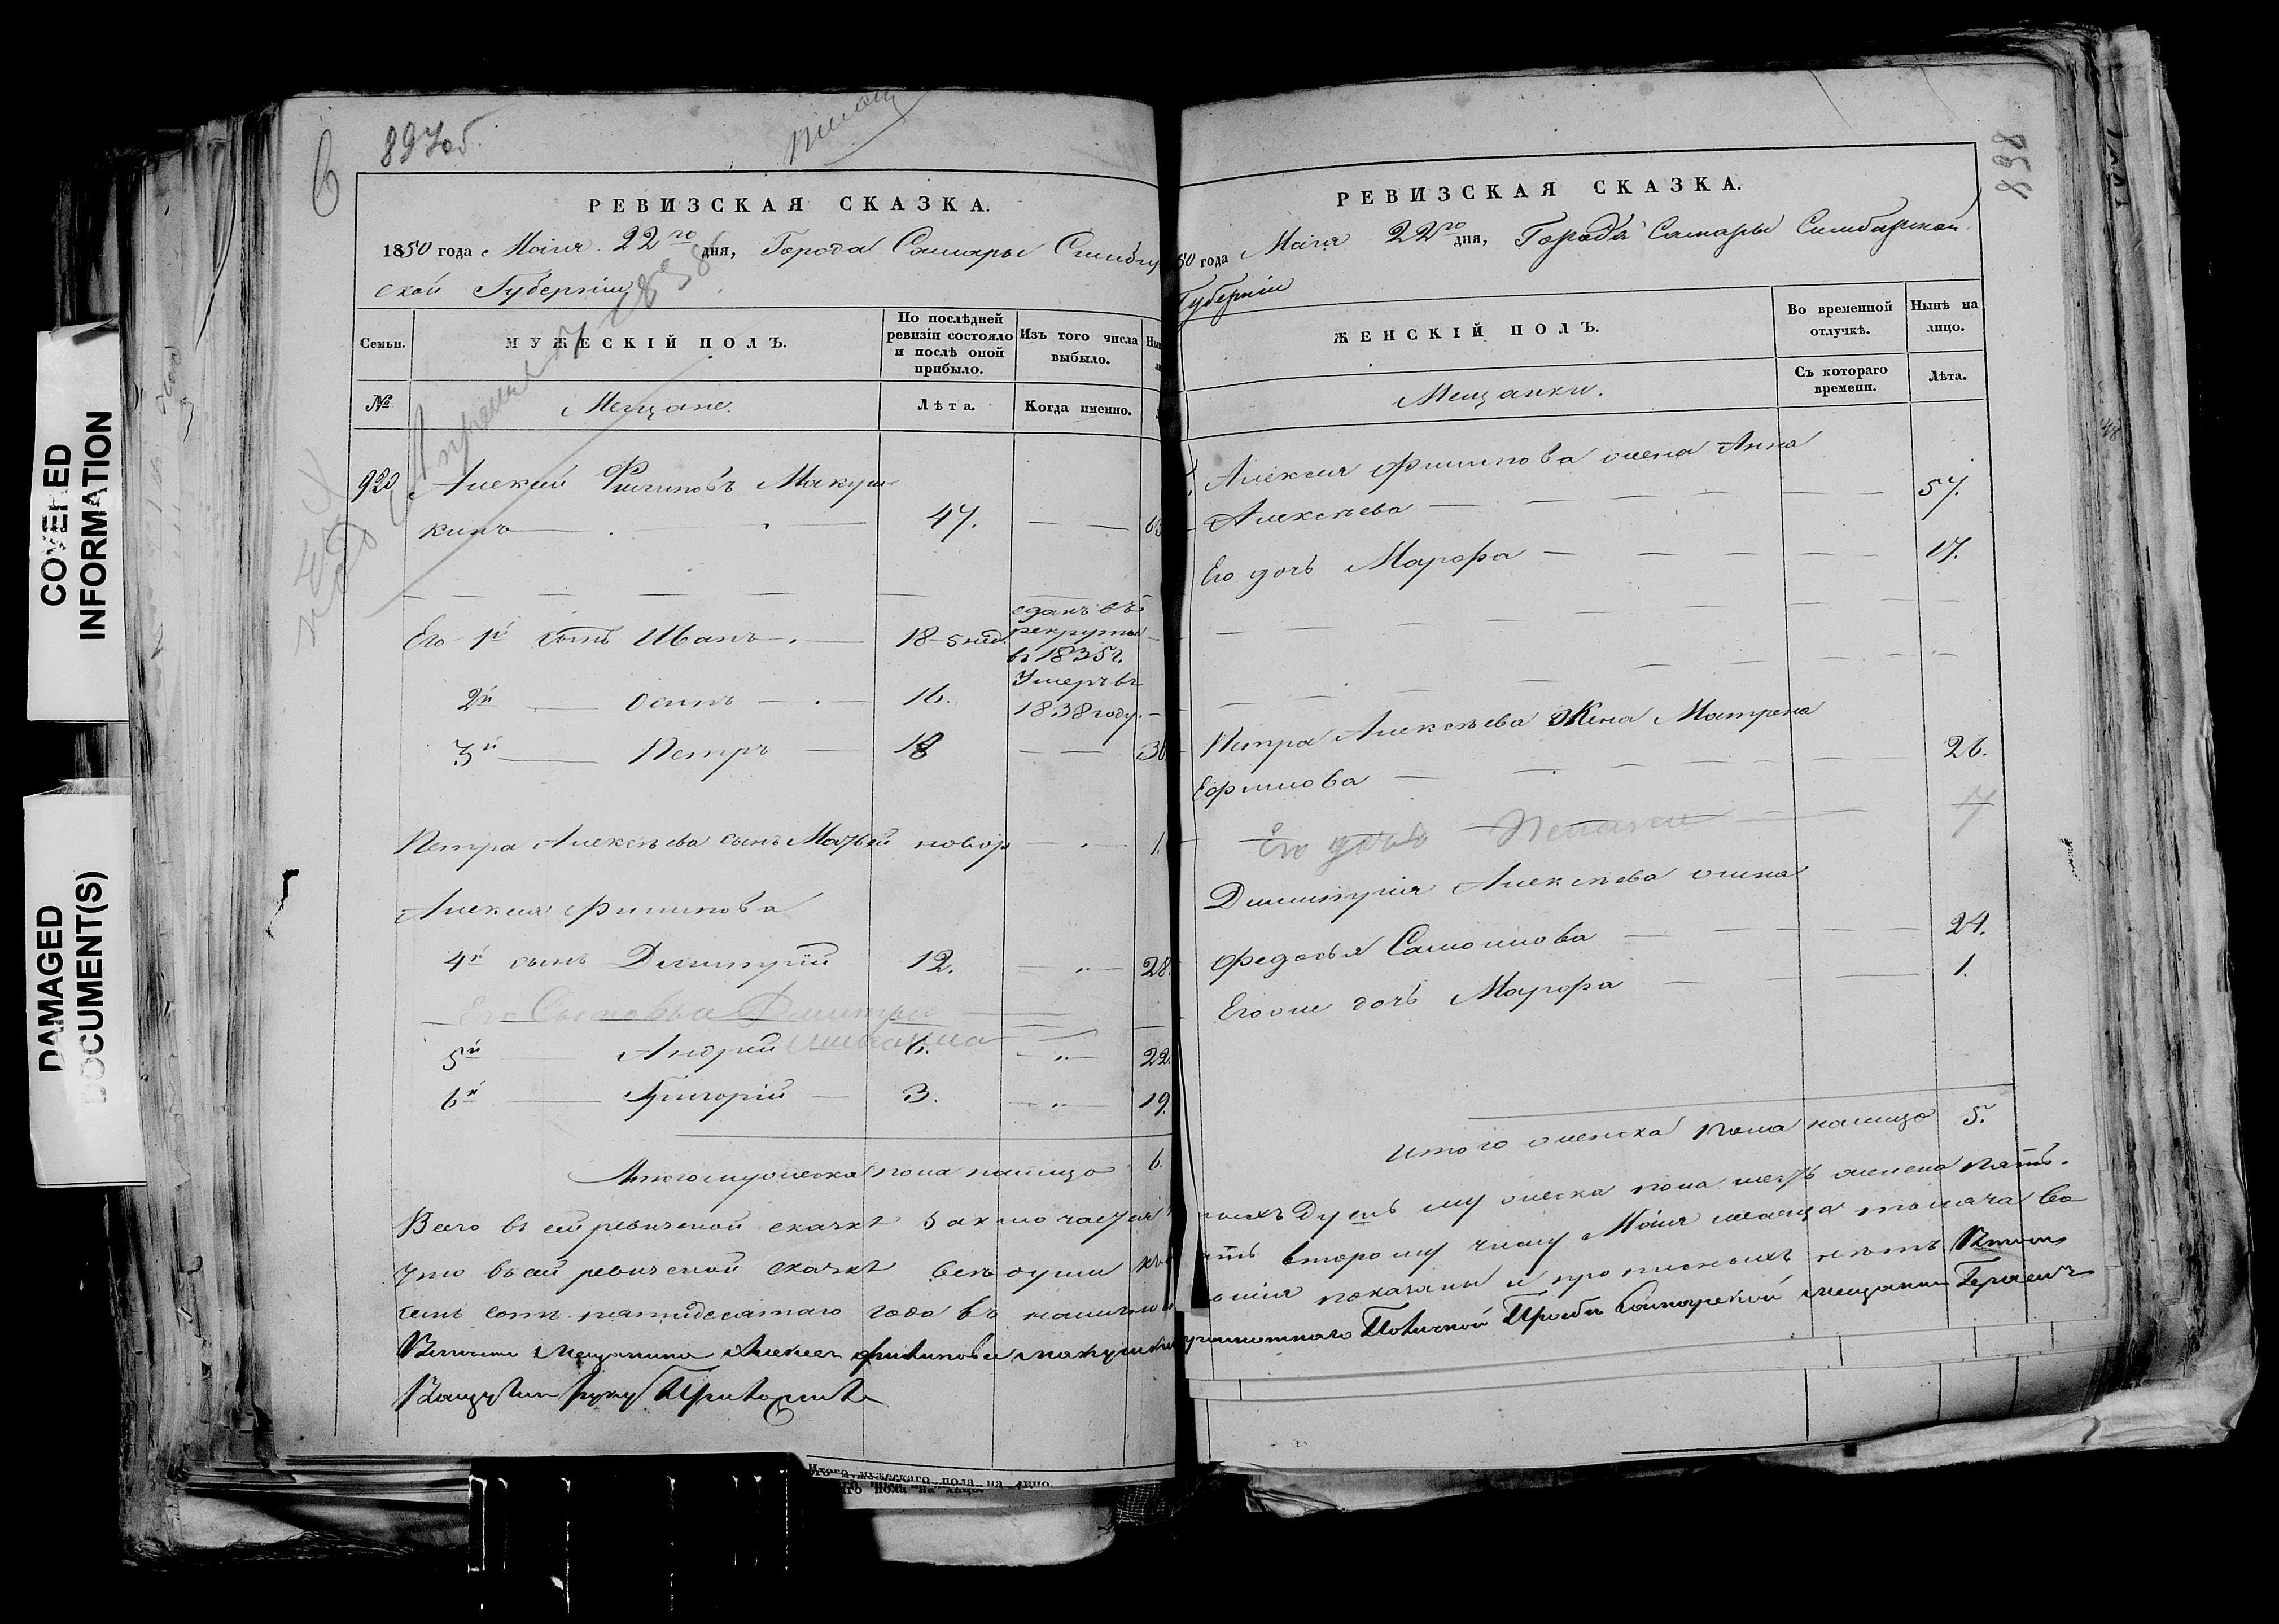 6
897об.
РЕВИЗСКАЯ СКАЗКА.
1850 года Маія 22го дня, Города Самары Симбир
ской Губерніи
Семьи.
МУЖЕСКІЙ ПОЛЪ.
По послѣдней ревизіи состояло и послѣ оной прибыло.
Изъ того числа выбыло.
№
Мещане.
Лѣта.
Когда именно.
920
Алексей Филиповъ Макуш
кинъ — 47. — 63
Его 1й сынъ Иванъ — 18-5 нед. сданъ въ
рекруты
въ 1835 г.
2й — Осипъ — 16. Умеръ въ
1838 году.
3й — Петръ — 18 — 30
Петра Алексѣева сынъ Матвей новор — 1.
Алексея Филипова
4й сынъ Дмитрій 12. — 28.
Его Сыновья Дмитри
5й Андрей 6. — 22.
6й — Григорій — 3. — 19.
Итого мужеска пола налицо 6.
Всего въ сей ревизской сказкѣ
что въ сей ревизской сказкѣ все души
семь сотъ пятидесятаго года въ
мещанина Алексея Филипова Макушкина
руку Приложилъ
898
РЕВИЗСКАЯ СКАЗКА.
50 года Маія 22го дня, Города Самары Симбирской
Губерніи
ЖЕНСКІЙ ПОЛЪ.
Во временной отлучкѣ.
Нынѣ на лицо.
Мещанки.
Съ котораго времени.
Лѣта.
Алексея Филипова жена Анна
Алексѣева — 57.
Его дочь Марфа — 17.
Петра Алексѣева Жена Матрена
Ефимова — 26.
Его дочь Пелагея — 7
Дмитрія Алексѣева жена
Федосья Самойлова — 24.
Его же дочь Марфа — 1.
Итого женска пола налицо 5.
душъ мужеска пола шесть женска пять.
второму числу Маія месяца тысяча во
показаны и прописныхъ нетъ
Прозбѣ Самарской мещанинъ
Итого мужескаго пола на лицо.
COVERED INFORMATION
DAMAGED DOCUMENT(S)